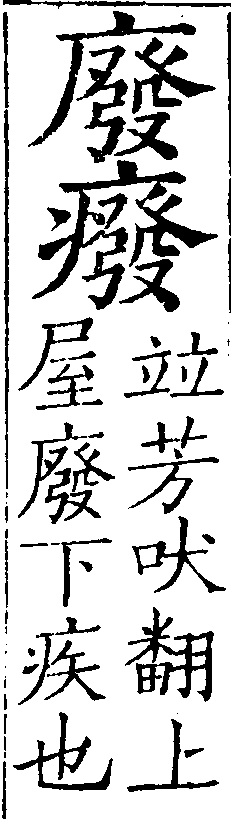 廢癈
竝芳吠翻上
屋廢下疾也